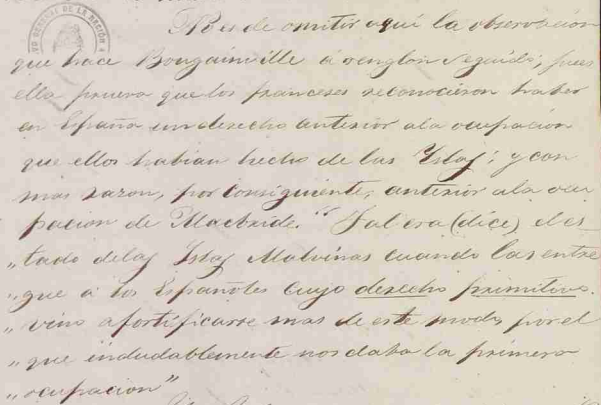 No es de omitir aquí la observación
que hace Bougainville á renglon seguido, pues
ella prueva que los franceses reconocieron haber
en España un derecho anterior a la ocupación
que ellos habian hecho de las Islas; y con
mas razon, por consiguiente, anterior a la ocu
pacion de Macbride. "Tal era (dice) el es-
"tado de las Islas Malvinas cuando las entre
"gue á los Españoles cuyo derecho primitivo
"vino a fortificarse mas de este modo, por el
"que indudablemente nos daba la primera
"ocupacion"